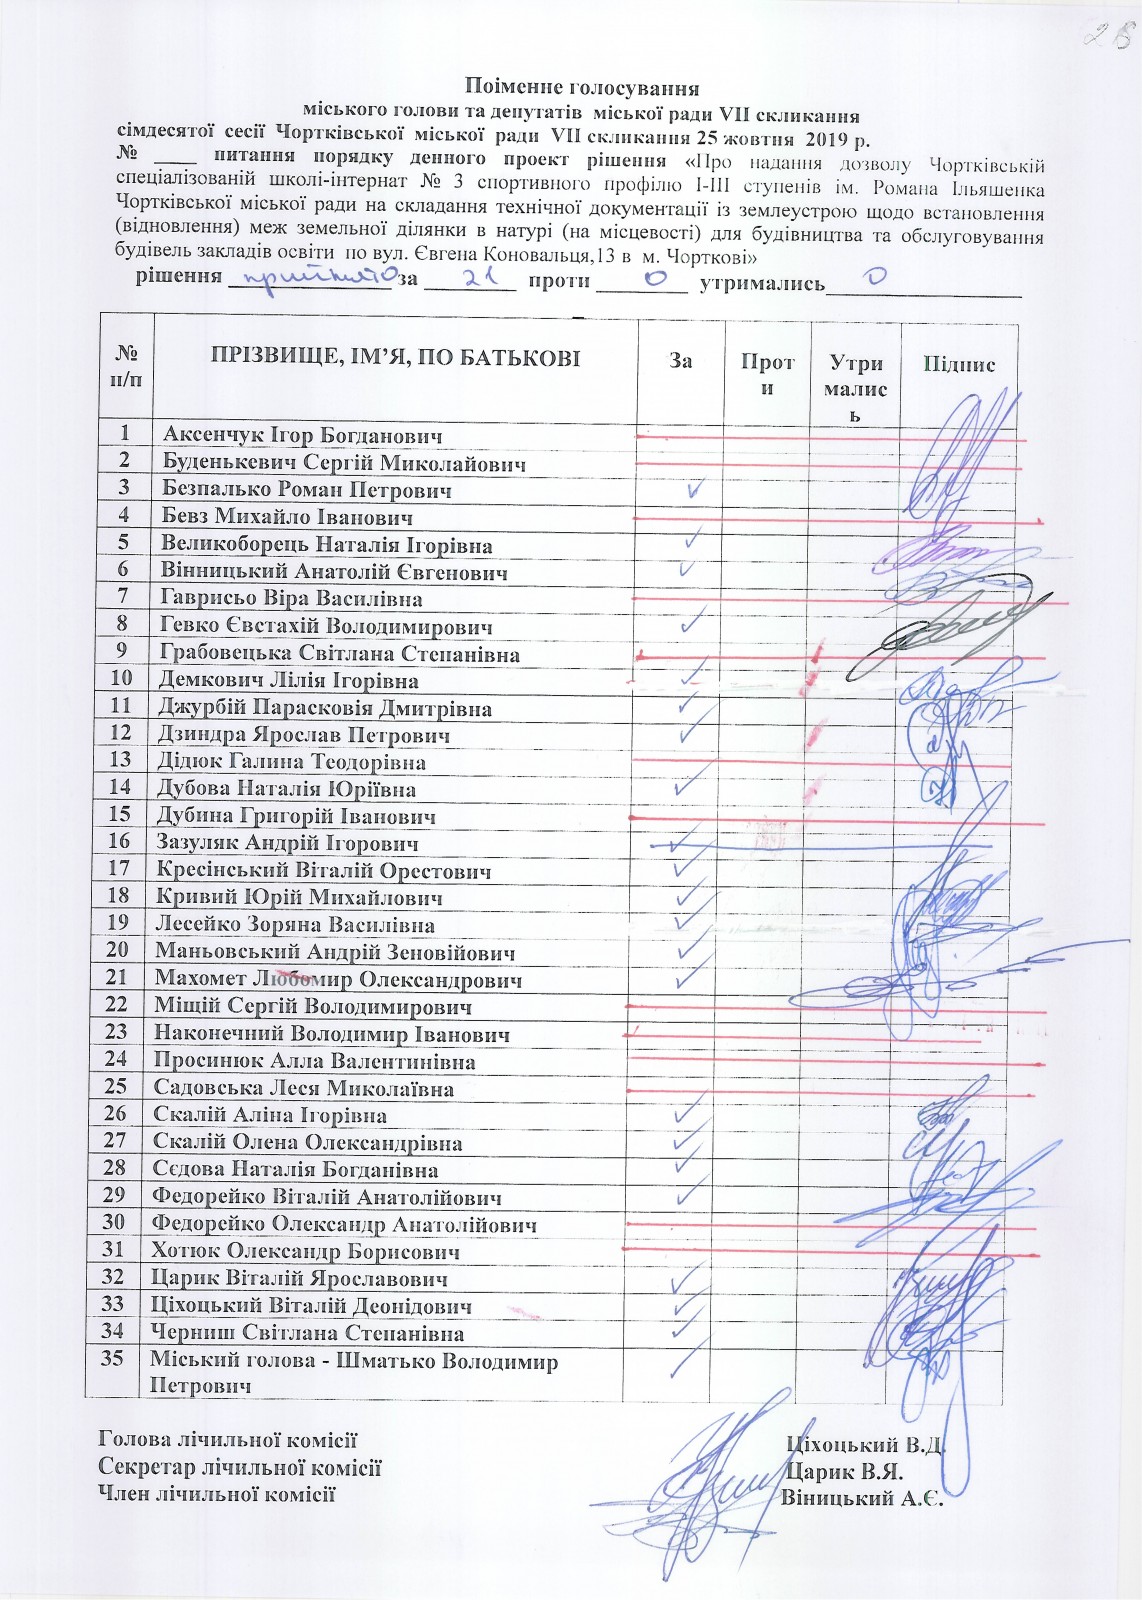 Поіменне голосування
міського голови та депутатів міської ради VII скликання
сімдесятої сесії Чортківської міської ради VII скликання 25 жовтня 2019 р.
№ ____ питання порядку денного проект рішення «Про надання дозволу Чортківській
спеціалізованій школі-інтернат № 3 спортивного профілю І-ІІІ ступенів ім. Романа Ільяшенка
Чортківської міської ради на складання технічної документації із землеустрою щодо встановлення
(відновлення) меж земельної ділянки в натурі (на місцевості) для будівництва та обслуговування
будівель закладів освіти по вул. Євгена Коновальця,13 в м. Чорткові»
рішення прийнято за 21 проти 0 утримались 0
№ п/п ПРІЗВИЩЕ, ІМ’Я, ПО БАТЬКОВІ За Проти Утрималис ь Підпис
1 Аксенчук Ігор Богданович
2 Буденькевич Сергій Миколайович
3 Безпалько Роман Петрович
4 Бевз Михайло Іванович
5 Великоборець Наталія Ігорівна
6 Вінницький Анатолій Євгенович
7 Гаврисьо Віра Василівна
8 Гевко Євстахій Володимирович
9 Грабовецька Світлана Степанівна
10 Демкович Лілія Ігорівна
11 Джурбій Парасковія Дмитрівна
12 Дзиндра Ярослав Петрович
13 Дідюк Галина Теодорівна
14 Дубова Наталія Юріївна
15 Дубина Григорій Іванович
16 Зазуляк Андрій Ігорович
17 Кресінський Віталій Орестович
18 Кривий Юрій Михайлович
19 Лесейко Зоряна Василівна
20 Маньовський Андрій Зеновійович
21 Махомет Любомир Олександрович
22 Міщій Сергій Володимирович
23 Наконечний Володимир Іванович
24 Просинюк Алла Валентинівна
25 Садовська Леся Миколаївна
26 Скалій Аліна Ігорівна
27 Скалій Олена Олександрівна
28 Сєдова Наталія Богданівна
29 Федорейко Віталій Анатолійович
30 Федорейко Олександр Анатолійович
31 Хотюк Олександр Борисович
32 Царик Віталій Ярославович
33 Ціхоцький Віталій Деонідович
34 Черниш Світлана Степанівна
35 Міський голова - Шматько Володимир
Петрович
Голова лічильної комісії Ціхоцький В.Д.
Секретар лічильної комісії Царик В.Я.
Член лічильної комісії Віницький А.Є.